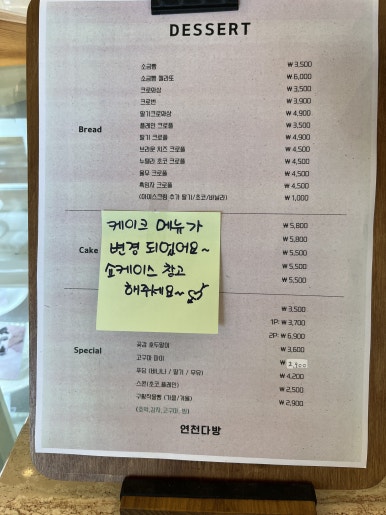 DESSERT
소금빵 ₩3,500
소금빵 젤라또 ₩6,000
크로와상 ₩3,500
크로반 ₩3,900
딸기크로와상 ₩4,900
플레인 크로플 ₩3,500
딸기 크로플 ₩4,900
Bread
브라운 치즈 크로플 ₩4,500
누텔라 초코 크로플 ₩4,500
율무 크로플 ₩4,500
흑임자 크로플 ₩4,500
(아이스크림 추가 딸기/초코/바닐라) ₩1,000
케이크 메뉴가
변경 되었어요~
쇼케이스 참고
해주세요~
Cake
₩5,800
₩5,800
₩5,500
₩5,500
₩5,500
₩3,500
1P: ₩3,700
2P: ₩6,900
Special
공갈 호두말이 ₩3,600
고구마 파이 ₩
푸딩 (바나나 / 딸기 / 우유) ₩4,200
스콘(초코,플레인) ₩2,500
구황작물빵 (가을/겨울) ₩2,900
(호박,감자,고구마, 밤)
연천다방